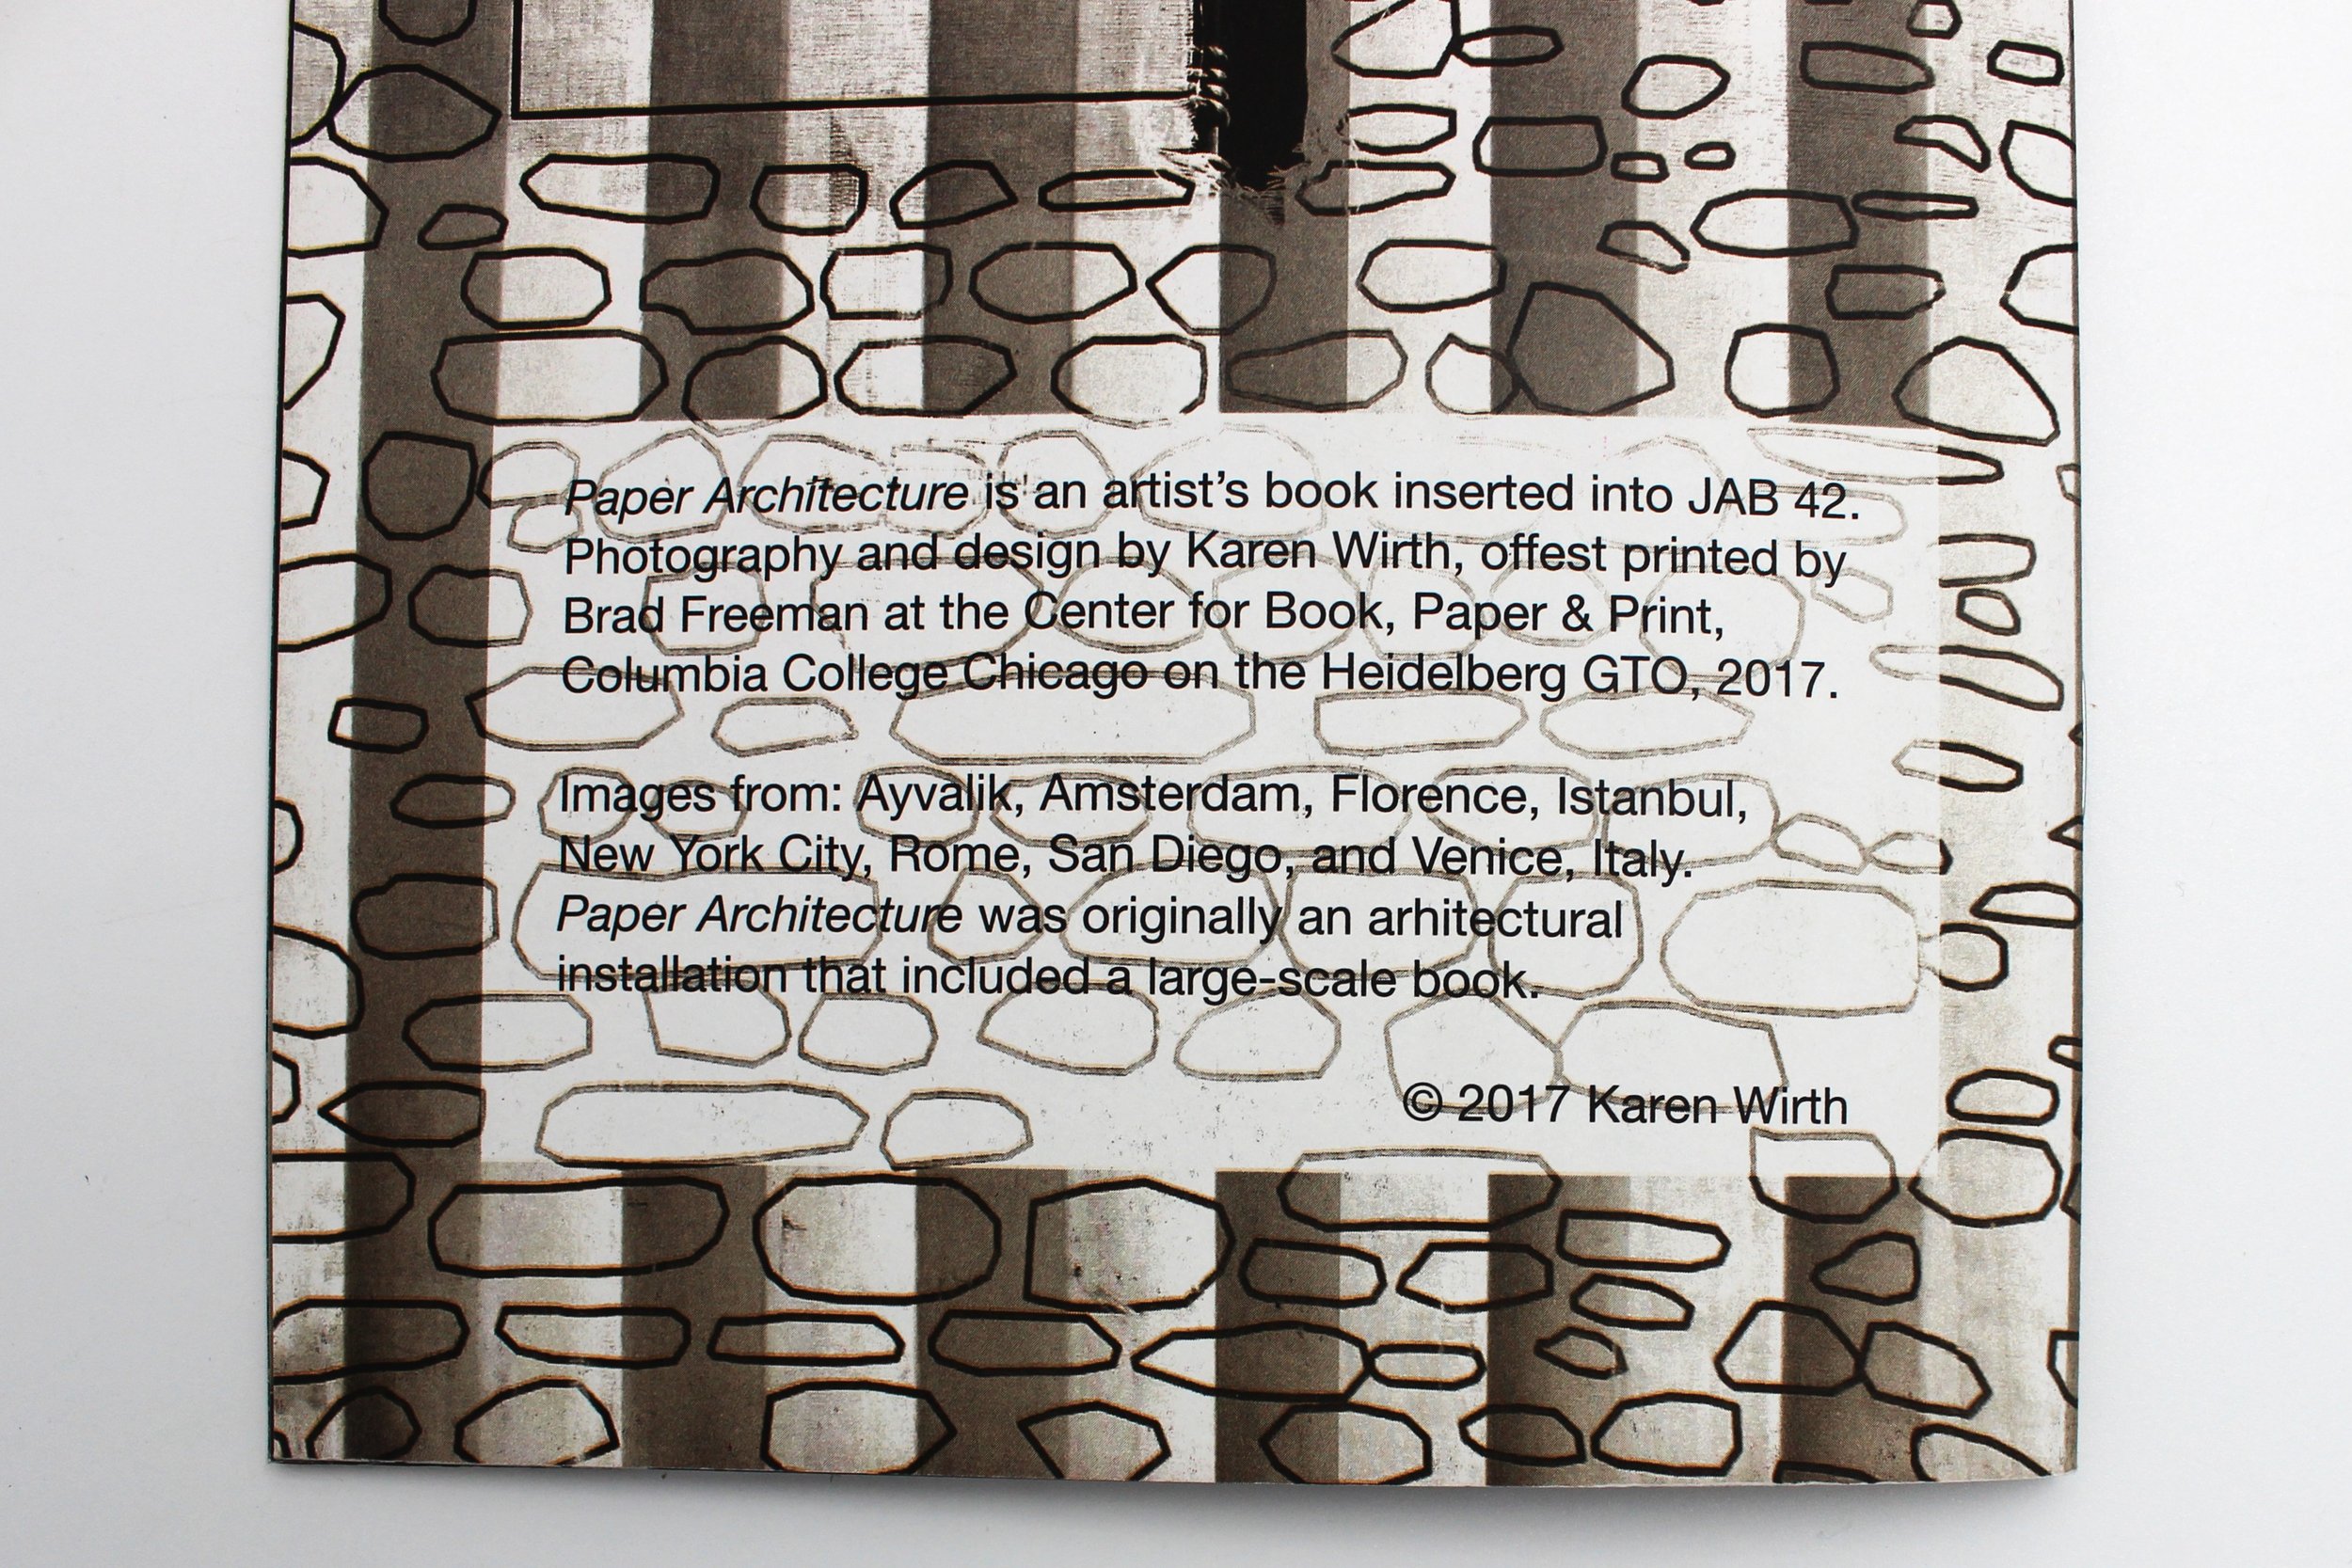 Paper Architecture is an artist's book inserted into JAB 42.
Photography and design by Karen Wirth, offest printed by
Brad Freeman at the Center for Book, Paper & Print,
Columbia College Chicago on the Heidelberg GTO, 2017.
Images from: Ayvalik, Amsterdam, Florence, Istanbul,
New York City, Rome, San Diego, and Venice, Italy.
Paper Architecture was originally an arhitectural
installation that included a large-scale book.
© 2017 Karen Wirth